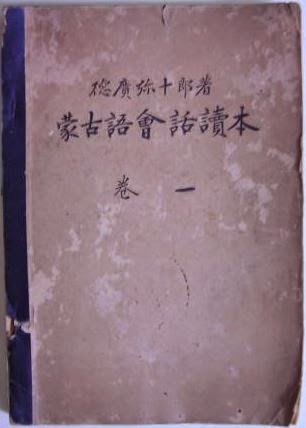 徳廣弥十郎著
蒙古語會話讀本
巻 一